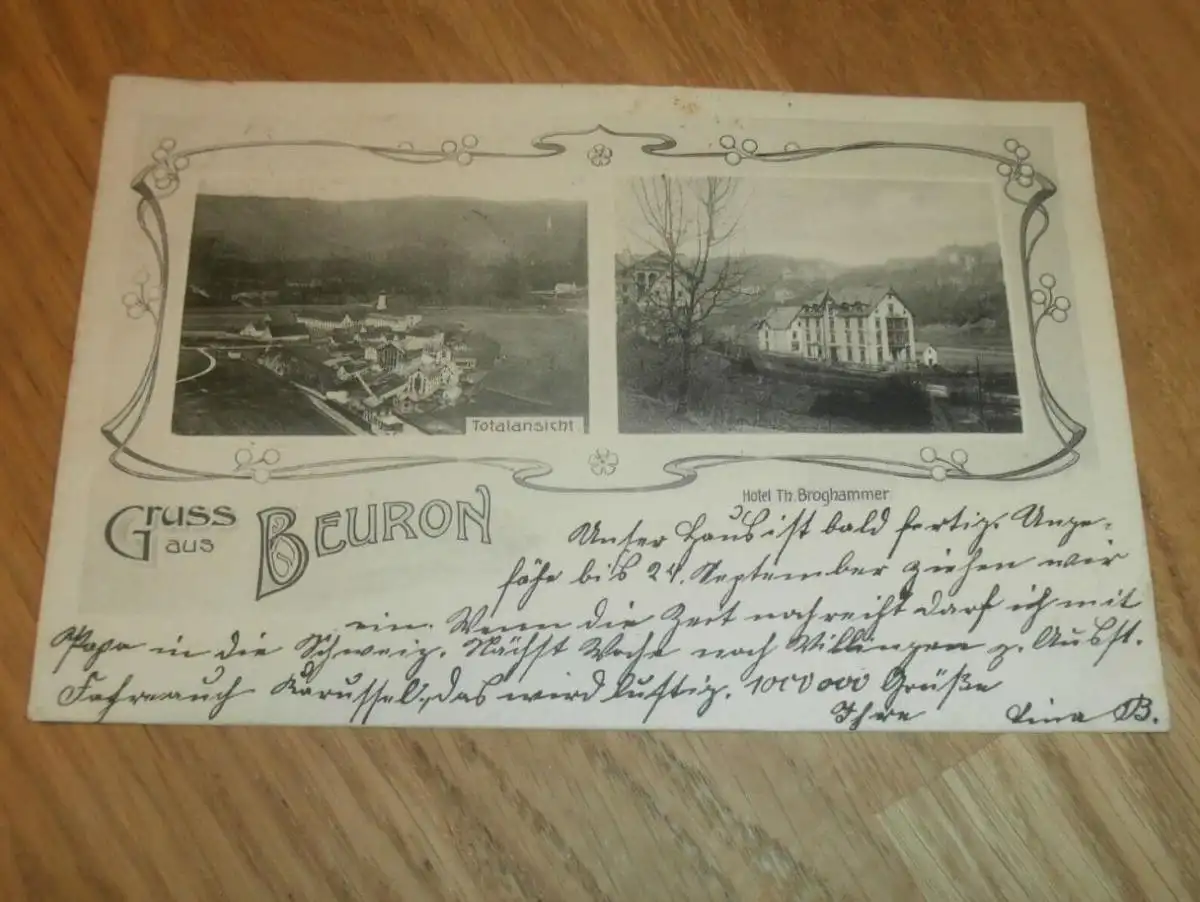 Totalansicht
Hotel Th. Broghammer
Gruss
aus
BEURON
Unser Haus ist bald fertig. Unge-
fähr bis 24. September ziehen wir
ein. Wenn die Zeit noch reicht darf ich mit
Papa in die Schweiz. Nächst Woche nach Villingen z. Ausst.
Fahre auch Karussel, das wird luftig. 1000000 Grüße
Ihre Lina B.